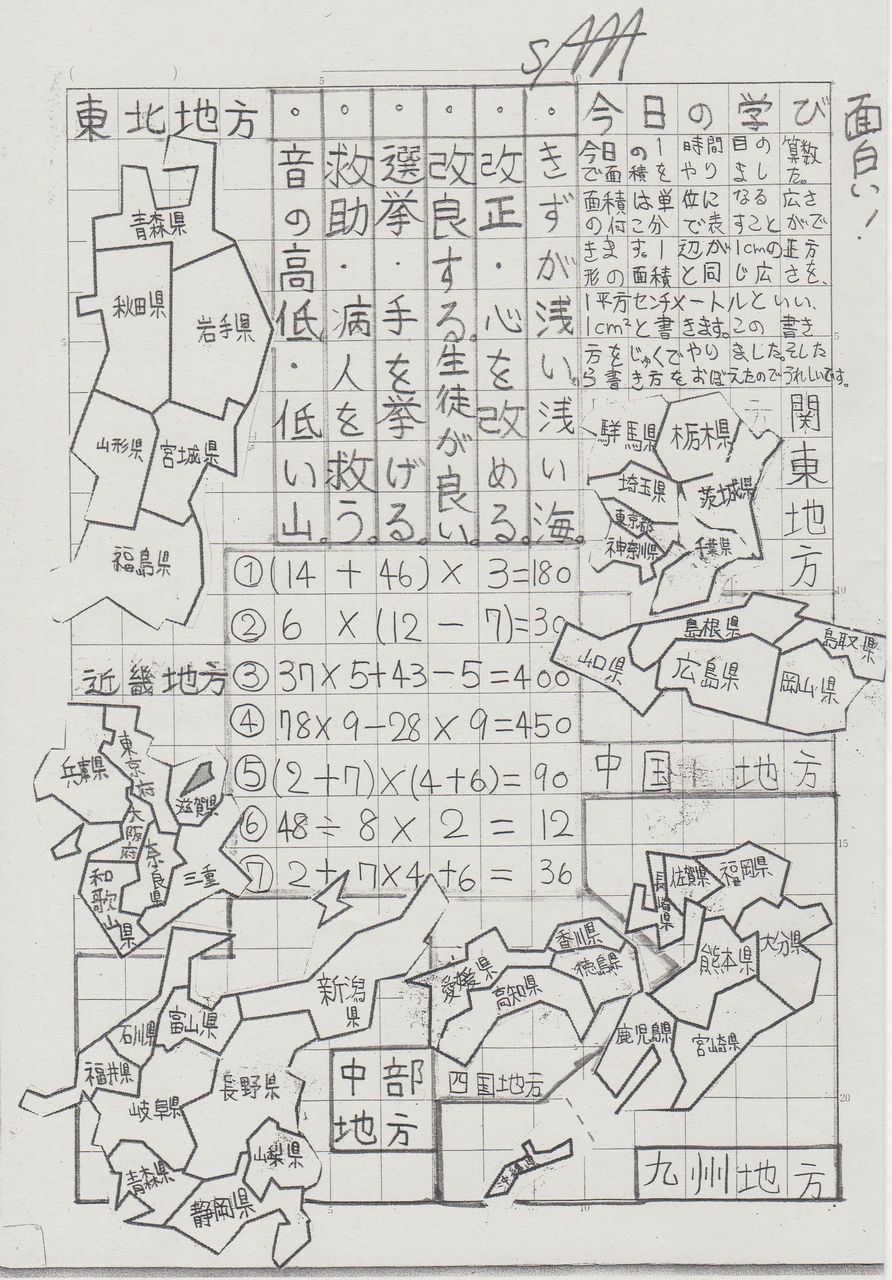 sAAA
面白い!
今日の学び
今日の1時間目の算数
で面積をやりました。
面積は単位になる広さ
の何こ分で表すことがで
きます。1辺が1cmの正方
形の面積と同じ広さを、
1平方センチメートルといい、
1cm²と書きます。この書き
方をじゅくでやりました。そした
ら書き方をおぼえたのでうれしいです。
。きずが浅い。浅い海。
。改正・心を改める。
。改良する。生徒が良い。
。選挙・手を挙げる。
。救助・病人を救う。
。音の高低・低い山。
東北地方
青森県
秋田県
岩手県
山形県
宮城県
福島県
関東地方
栃木県
埼玉県
茨城県
東京都
神奈川県
千葉県
①(14 + 46) × 3=180
② 6 × (12 - 7)=30
③ 37×5+43-5=400
④ 78×9-28×9=450
⑤ (2+7)×(4+6)=90
⑥ 48÷8×2=12
⑦ 2+7×4+6=36
島根県
鳥取県
山口県
広島県
岡山県
中国地方
近畿地方
兵庫県
東京府
滋賀県
大阪府
奈良県
三重
和歌山県
新潟県
石川県
富山県
福井県
長野県
岐阜県
山梨県
青森県
静岡県
中部地方
香川県
愛媛県
徳島県
高知県
四国地方
佐賀県
福岡県
長崎県
熊本県
大分県
鹿児島県
宮崎県
九州地方